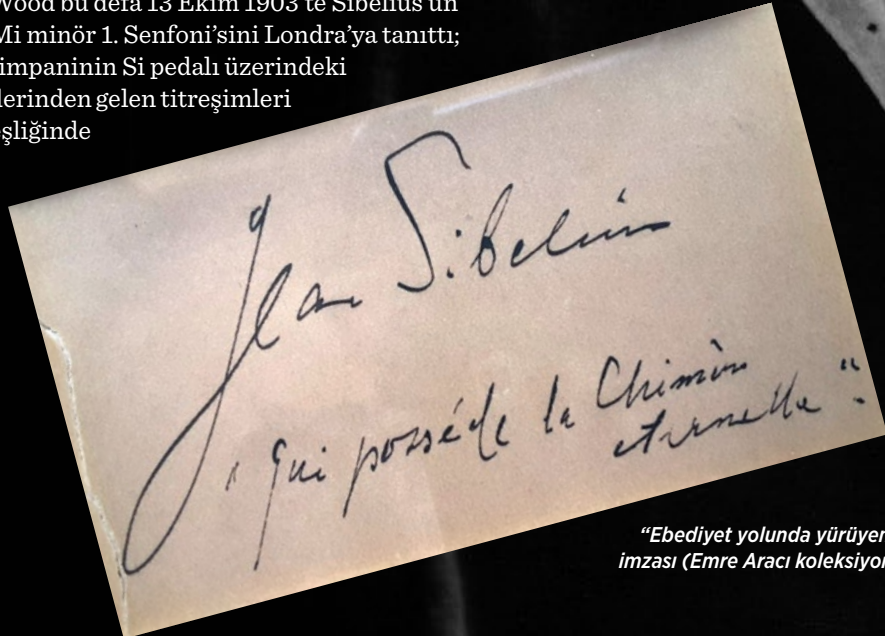 Wood bu defa 13 Ekim 1903'te Sibelius'un
Mi minör 1. Senfoni'sini Londra'ya tanıttı;
timpaninin Si pedalı üzerindeki
lerinden gelen titreşimleri
şliğinde
Jean Sibelius
" qui possède la Chimère
éternelle ".
"Ebediyet yolunda yürüyen
imzası (Emre Aracı koleksiyon